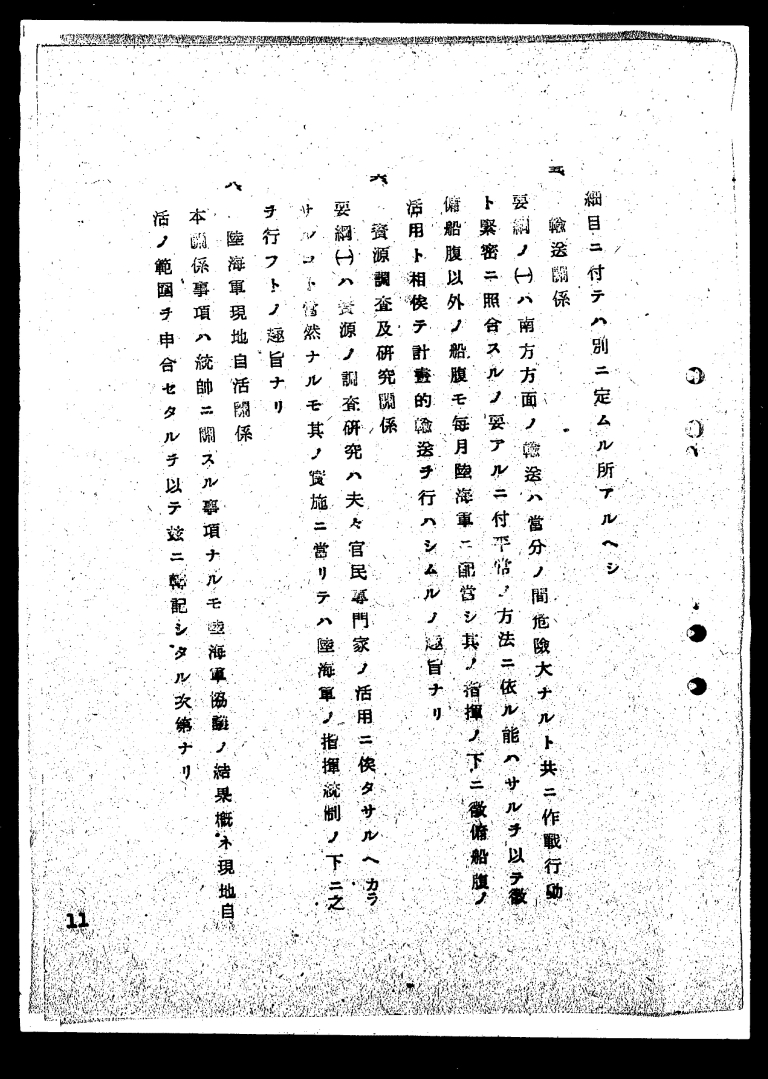 細目ニ付テハ別ニ定ムル所アルヘシ
五、輸送關係
要綱ノ㈠ハ南方方面ノ輸送ハ當分ノ間危險大ナルト共ニ作戰行動
ト緊密ニ照合スルノ要アルニ付平常ノ方法ニ依ル能ハサルヲ以テ徵
傭船腹以外ノ船腹モ每月陸海軍ニ配當シ其ノ指揮ノ下ニ徵傭船腹ノ
活用ト相俟テ計畫的輸送ヲ行ハシムルノ趣旨ナリ
六、資源調査及硏究關係
要綱㈠ハ資源ノ調査硏究ハ夫々官民專門家ノ活用ニ俟タサルヘカラ
サルコト當然ナルモ其ノ實施ニ當リテハ陸海軍ノ指揮統制ノ下ニ之
ヲ行フトノ趣旨ナリ
八、陸海軍現地自活關係
本關係事項ハ統帥ニ關スル事項ナルモ陸海軍協議ノ結果槪ネ現地自
活ノ範圍ヲ申合セタルヲ以テ玆ニ轉記シタル次第ナリ
11